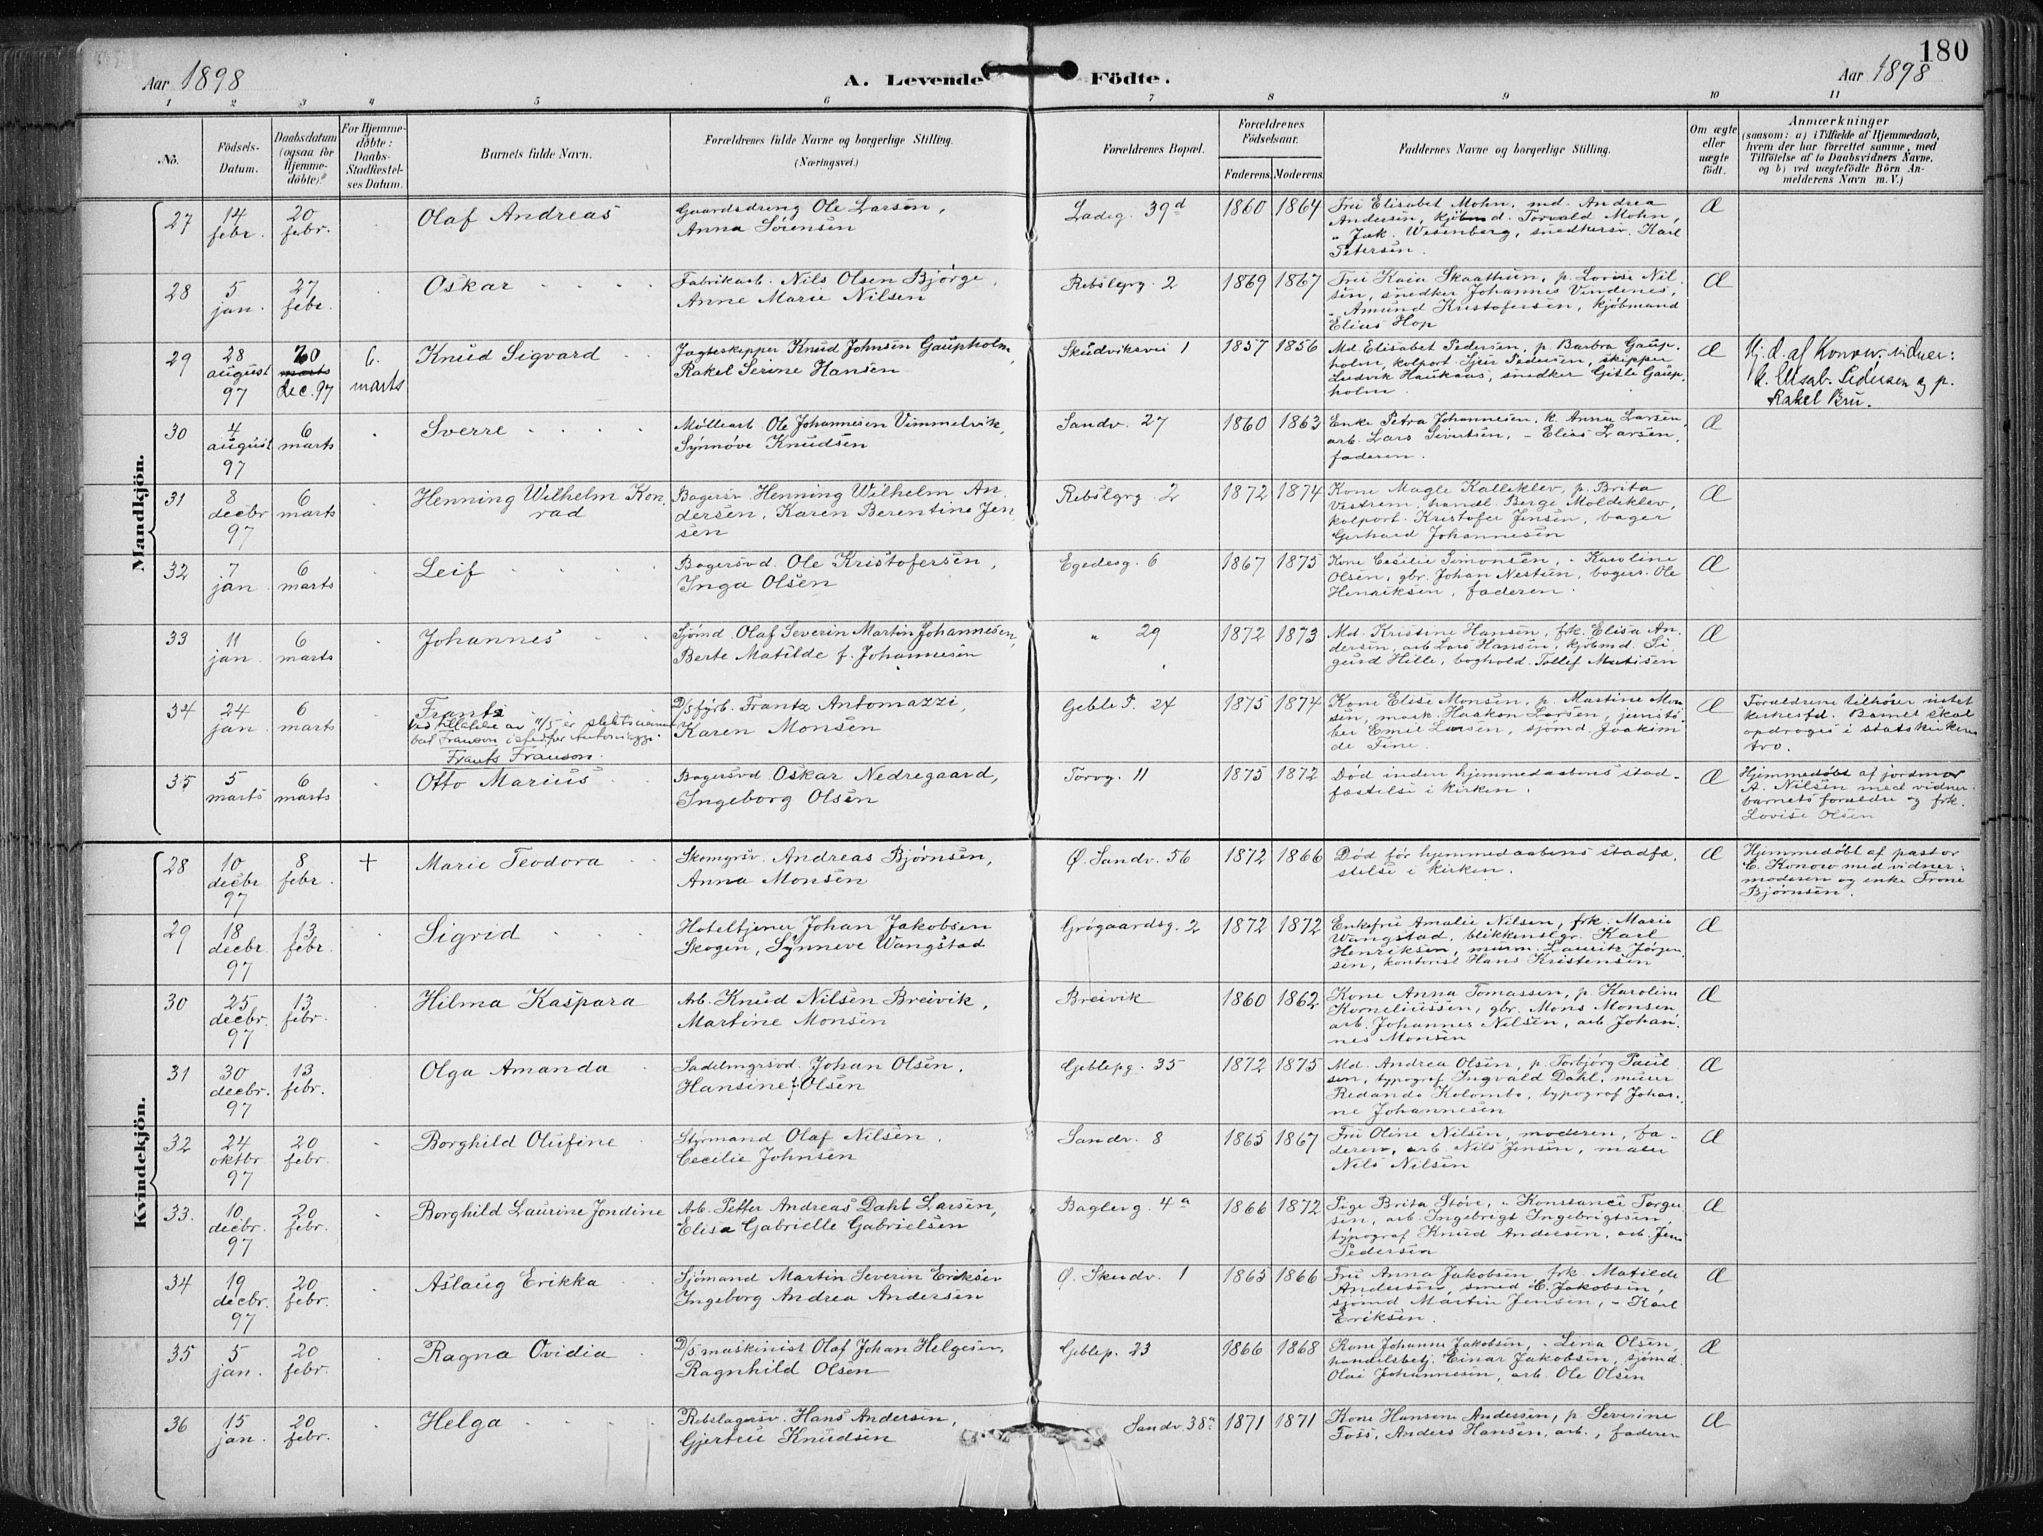 180
Aar 1898
A. Levende Födte.
Aar 1898
1 2 3 4 5 6 7 8 9 10 11
No.
Födsels-Datum.
Daabsdatum (ogsaa for Hjemme-döbte).
For Hjemme-döbte: Daabs-Stadfæstel-ses Datum.
Barnets fulde Navn.
Forældrenes fulde Navne og borgerlige Stilling.
(Næringsvei.)
Forældrenes Bopæl.
Forældrenes Födselsaar.
Faderens. Moderens.
Faddernes Navne og borgerlige Stilling.
Om ægte eller uægte födt.
Anmærkninger
(saasom: a) i Tilfælde af Hjemmedaab,
hvem der har forrettet samme, med
Tilföielse af to Daabsvidners Navne,
og b) ved uægtefödte Börn An-
melderens Navn m. V.)
Mandkjön.
27 14 febr. 20 febr. Olaf Andreas
Gaardsdreng Ole Larsen,
Anna Sörensen
Ladeg. 39d 1860 1864
Fru Elisabet Mohn, md. Andrea
Andersen, kjöbmd. Torvald Mohn,
" Jak. Wesenberg, snedkersv. Karl
Petersen.
Æ
28 5 jan. 27 febr. Oskar
Fabrikarb. Nils Olsen Bjørge,
Anne Marie Nilsen
Rebslgrg. 2 1869 1867
Fru Kaia Skaathun, p. Lovise Nil-
sen, snedker Johannes Vindenes,
" Amund Kristofersen, kjøbmand
Elias Hop
Æ
29 28 august 97 20 marts dec. 97 6. marts Knud Sigvard
Jagteskipper Knud Johnsen Gaupholm,
Rakel Serine Hansen
Skudviksvei 1 1857 1856
Md Elisabet Pedersen, p. Barbra Gaup-
holm, kolport. Sjur Pedersen, skipper
Ludvik Haukaas, snedker Gitle Gaup-
holm.
Æ
Hj. d. af Konow. vidner:
k. Elisab. Pedersen og p.
Rakel Bru.
30 4 august 97 6 marts Sverre
Møllearb Ole Johannesen Vimmelvik,
Synnøve Knudsen
Sandv. 27 1860 1863
Enke Petra Johannesen, k. Anna Larsen,
arb. Lars Sivertsen, - Elias Larsen,
faderen.
Æ
31 8 decbr 97 6 marts Henning Wilhelm Kon-
rad
Bagersv Henning Wilhelm An-
dersen, Karen Berentine Jen-
sen
Rebslgrg 2 1872 1874
Kone Magle Kalleklev, p. Brita
Vestrem, handl. Berge Moldeklev,
kolport. Kristofer Jensen, bager
Gerhard Johannesen
Æ
32 7 jan. 6 marts Leif
Bagersvd. Ole Kristofersen,
Inga Olsen
Egedesg. 6 1867 1875
Kone Cecilie Simonsen, - Karoline
Olsen, gbr. Johan Nestun, bagers. Ole
Henriksen, faderen.
Æ
33 11 jan. 6 marts Johannes
Sjømd. Olaf Severin Martin Johannesen,
Berte Matilde f. Johannesen
" 29 1872 1873
Md. Kristine Hansen, frk. Elisa An-
dersen, arb. Lars Hansen, kjøbmd. Si-
gurd Hille, boghold. Tollef Matisen
Æ
34 24 jan. 6 marts Frantz
Ved tillatelse av 11/5 er slektsnavnet
Franson istedfor Antomazzi.
Frants Franson.
D/s fyrb. Frantz Antomazzi,
Karen Monsen
Geble P. 24 1875 1874
Kone Elise Monsen, p. Martine Mon-
sen, mask. Haakon Larsen, jernstö-
ber Emil Larsen, sjømd. Joakim
de Fine.
Æ
Forældrene tilhører intet
kirkesfd. Barnet skal
opdrages i statskirkens
tro.
35 5 marts 6 marts Otto Marius
Bagersvd Oskar Nedregaard,
Ingeborg Olsen
Torvg. 11 1875 1872
Död inden hjemmedaabens stad-
fæstelse i kirken.
Æ
Hjemmedöbt af jordmor
A. Nilsen med vidner
barnets forældre og frk.
Lovise Olsen
Kvindekjön.
28 10 decbr 97 8 febr. + Marie Teodora
Skomgrsv. Andreas Bjørnsen,
Anna Monsen
Ø. Sandv. 56 1872 1866
Död før hjemmedaabens stadfæ-
stelse i kirken.
Æ
Hjemmedøbt af pastor
C. Konow med vidner:
moderen og enke Trone
Bjørnsen.
29 18 decbr. 97 13 febr. Sigrid
Hoteltjener Johan Jakobsen
Skogen, Synneve Wangstad
Grøgaardsg. 2 1872 1872
Enkefru Amalie Nilsen, frk. Marie
Wangstad, blikkenslgr. Karl
Henriksen, murm. Lauritz Jørgen-
sen, kontorist Hans Kristensen
Æ
30 25 decbr. 97 13 febr. Hilma Kaspara
Arb. Knud Nilsen Breivik,
Martine Monsen
Breivik 1860 1862
Kone Anna Tomassen, p. Karoline
Korneliussen, gbr. Mons Monsen,
arb. Johannes Nilsen, arb Johan-
nes Monsen
Æ
31 30 decbr. 97 13 febr. Olga Amanda
Sadelmgrsvd. Johan Olsen,
Hansine f. Olsen
Geblepg. 35 1872 1875
Md. Andrea Olsen, p. Torbjørg Paul-
sen, typograf Ingvald Dahl, murer
Redando Kolombo, typograf Johan-
ne Johannesen
Æ
32 24 oktbr 97 20 febr. Borghild Olufine
Styrmand Olaf Nilsen,
Cecilie Johnsen
Sandv. 8 1865 1867
Fru Oline Nilsen, moderen, fa-
deren, arb. Nils Jensen, maler
Nils Nilsen
Æ
33. 10 decbr. 97 20 febr. Borghild Laurine Jondine
Arb. Petter Andreas Dahl Larsen,
Elisa Gabrielle Gabrielsen
Baglerg. 4a 1866 1872
Pige Brita Støve, - Konstance Torger-
sen, arb. Ingebrigt Ingebrigtsen,
typograf Knud Andersen, arb. Jens
Pedersen
Æ
34 19 decbr. 97 20 febr. Aslaug Erikka
Sjømand Martin Severin Eriksen
Ingeborg Andrea Andersen
Ø. Skudv. 1 1865 1866
Fru Anna Jakobsen, frk. Matilde
Andersen, smed C. Jakobsen,
sjømd Martin Jensen, - Karl
Eriksen.
Æ
35 5 jan. 20 febr. Ragna Ovidia
D/s maskinist Olaf Johan Helgesen,
Ragnhild Olsen
Geblep. 23 1866 1868
Kone Johanna Jakobsen, - Lina Olsen,
handelsbetj. Einar Jakobsen, sjømd.
Olai Johannesen, arb. Ole Olsen
Æ
36 15 jan. 20 febr. Helga
Rebslagersv. Hans Andersen,
Gjertru Knudsen
Sandv. 38a 1871 1871
Kone Hansine Andersen, p. Severine
Foss, Anders Hansen, arb., faderen
Æ